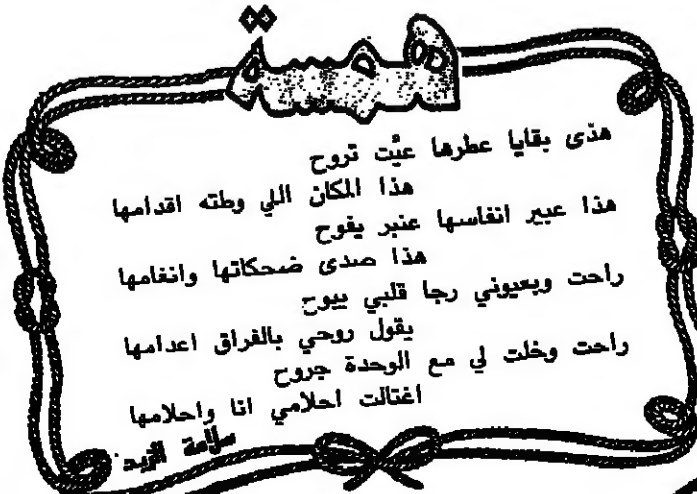 همسة
هذى بقايا عطرها عيّت تروح
هذا المكان اللي وطته اقدامها
هذا عبير انفاسها عنبر يفوح
هذا صدى ضحكاتها وانغامها
راحت وبعيوني رجا قلبي يبوح
يقول روحي بالفراق اعدامها
راحت وخلت لي مع الوحدة جروح
اغتالت احلامي انا واحلامها
سلامة الزيد